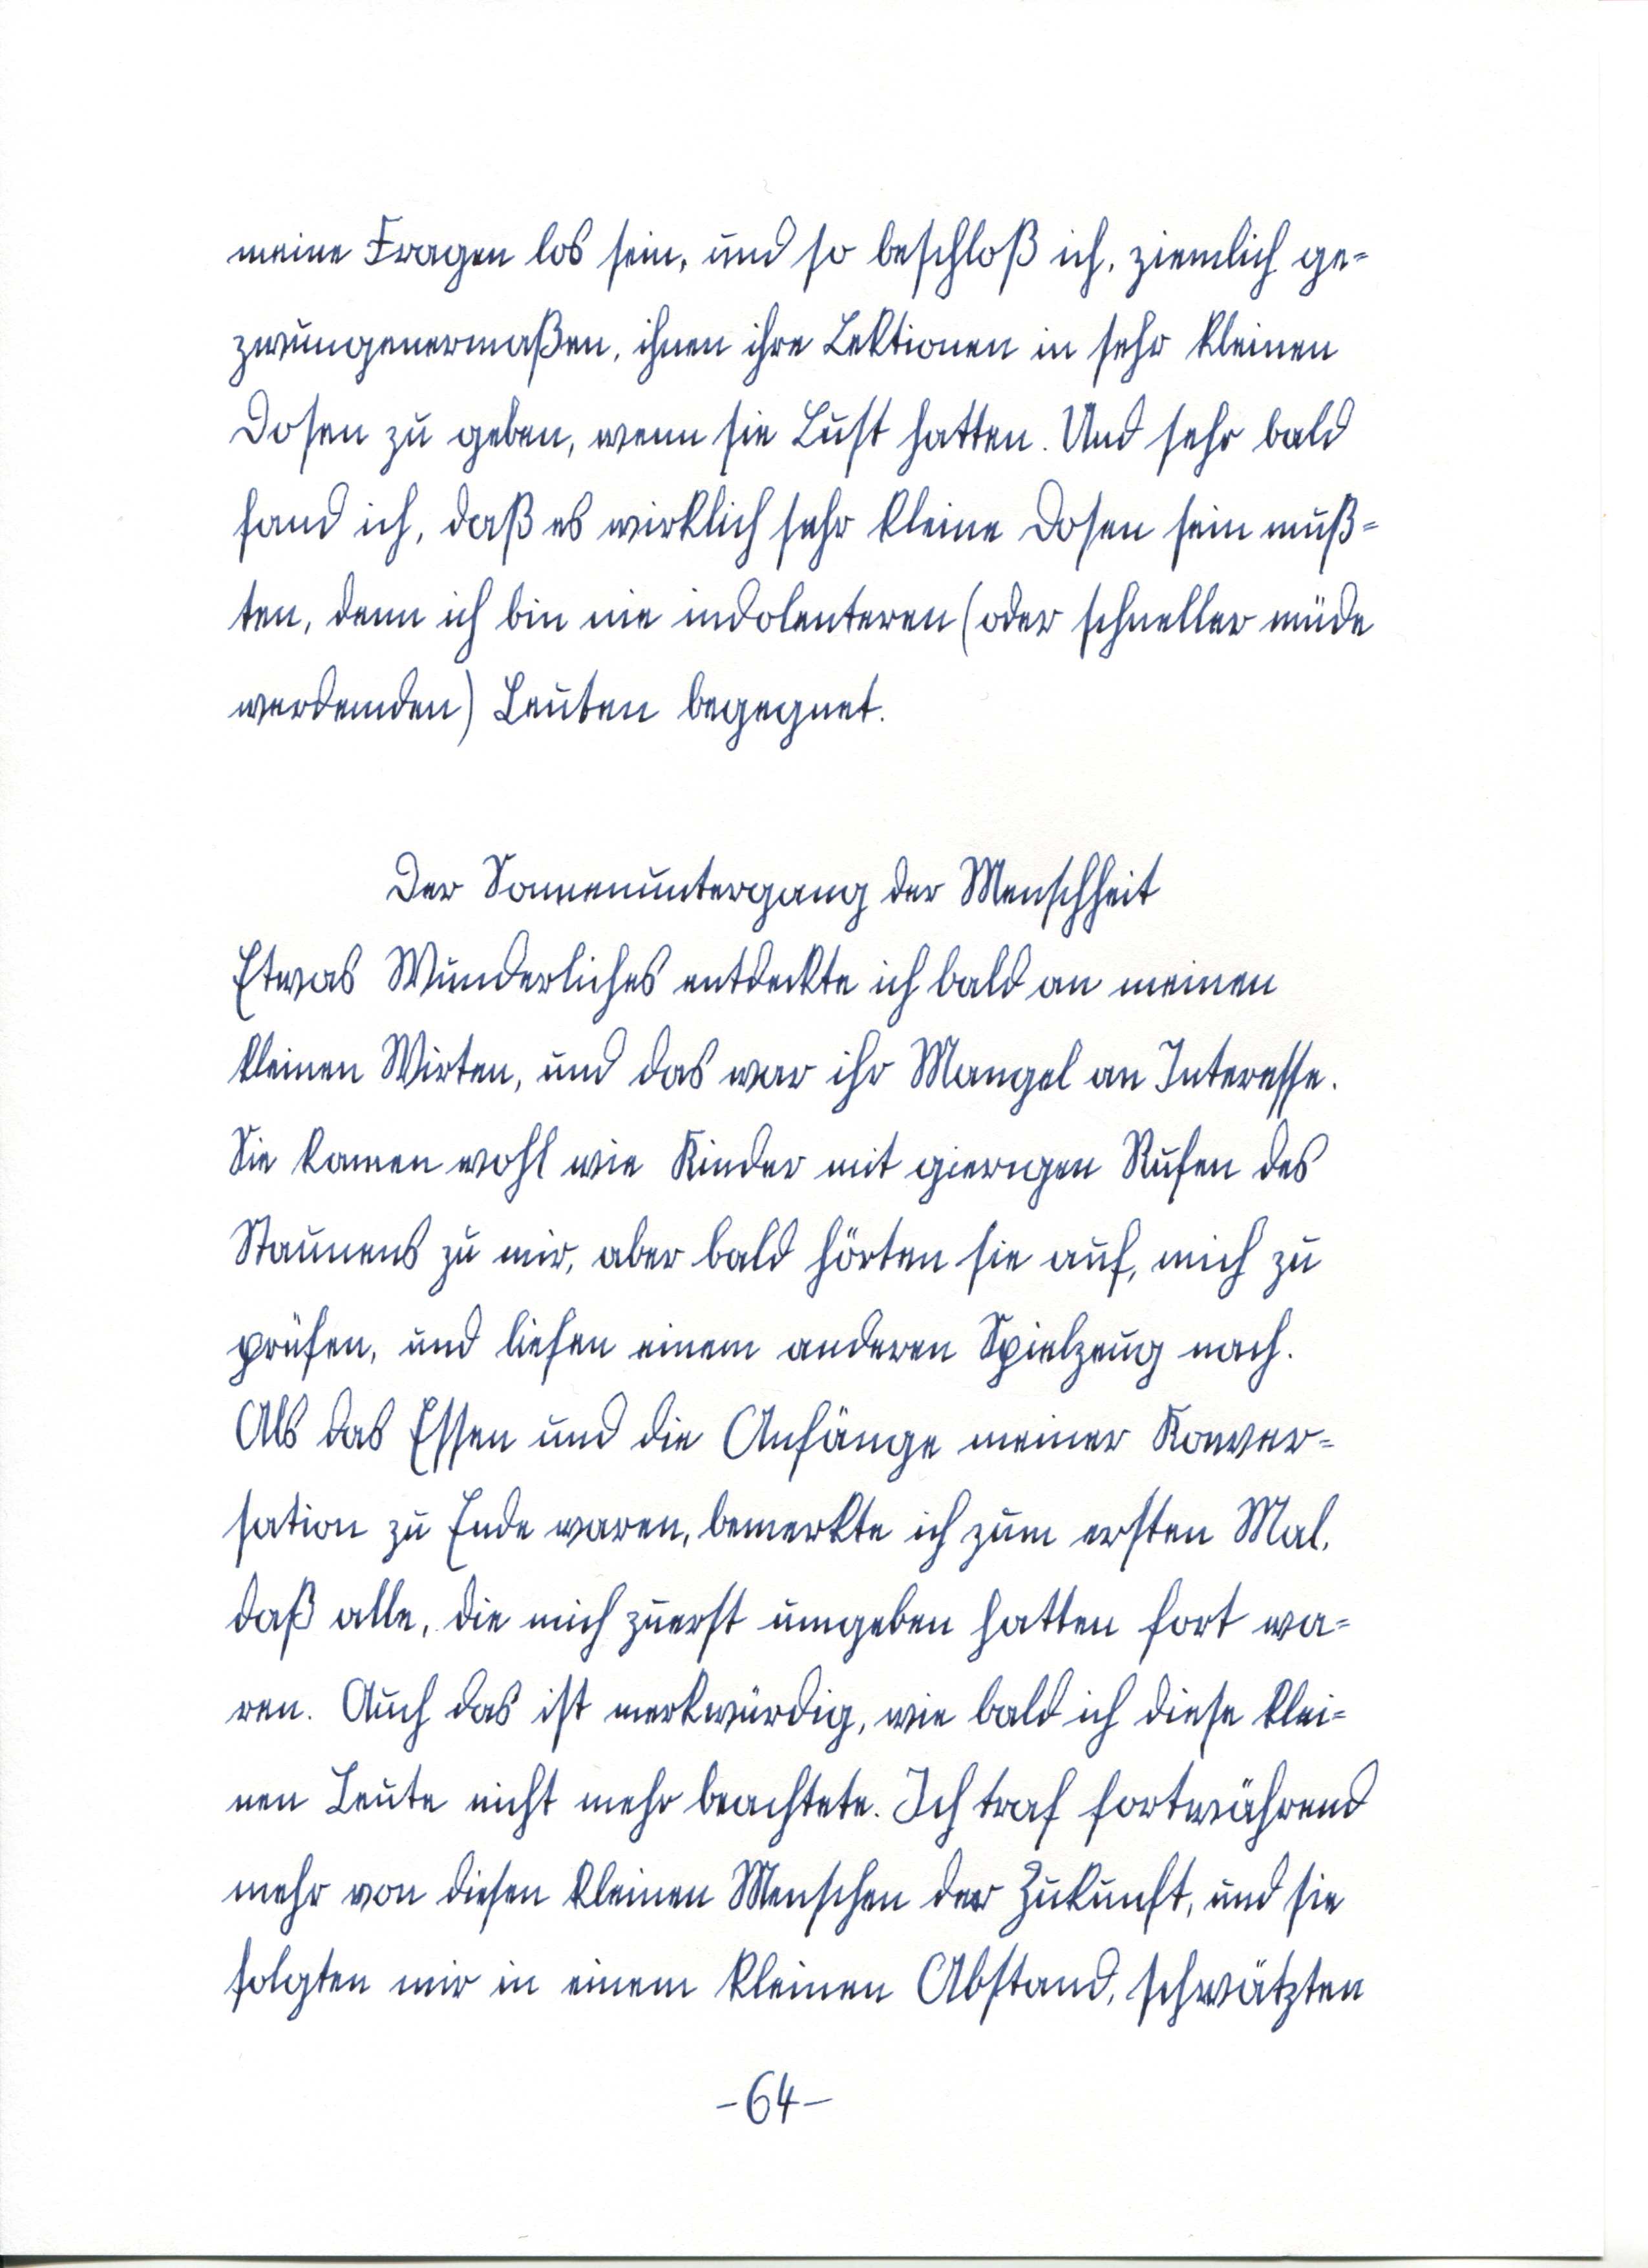 meine Fragen los sein, und so beschloß ich, ziemlich ge=
zwungenermaßen, ihnen ihre Lektionen in sehr kleinen
Dosen zu geben, wenn sie Lust hatten. Und sehr bald
fand ich, daß es wirklich sehr kleine Dosen sein muß=
ten, denn ich bin nie indolenteren (oder schneller müde
werdenden) Leuten begegnet.
Der Sonnenuntergang der Menschheit
Etwas Wunderliches entdeckte ich bald an meinen
kleinen Wirten, und das war ihr Mangel an Interesse.
Sie kamen wohl wie Kinder mit gierigen Rufen des
Staunens zu mir, aber bald hörten sie auf, mich zu
prüfen, und liefen einem anderen Spielzeug nach.
Als das Essen und die Anfänge meiner Konver=
sation zu Ende waren, bemerkte ich zum ersten Mal,
daß alle, die mich zuerst umgeben hatten fort wa=
ren. Auch das ist merkwürdig, wie bald ich diese klei=
nen Leute nicht mehr beachtete. Ich traf fortwährend
mehr von diesen kleinen Menschen der Zukunft, und sie
folgten mir in einem kleinen Abstand, schwätzten
-64-